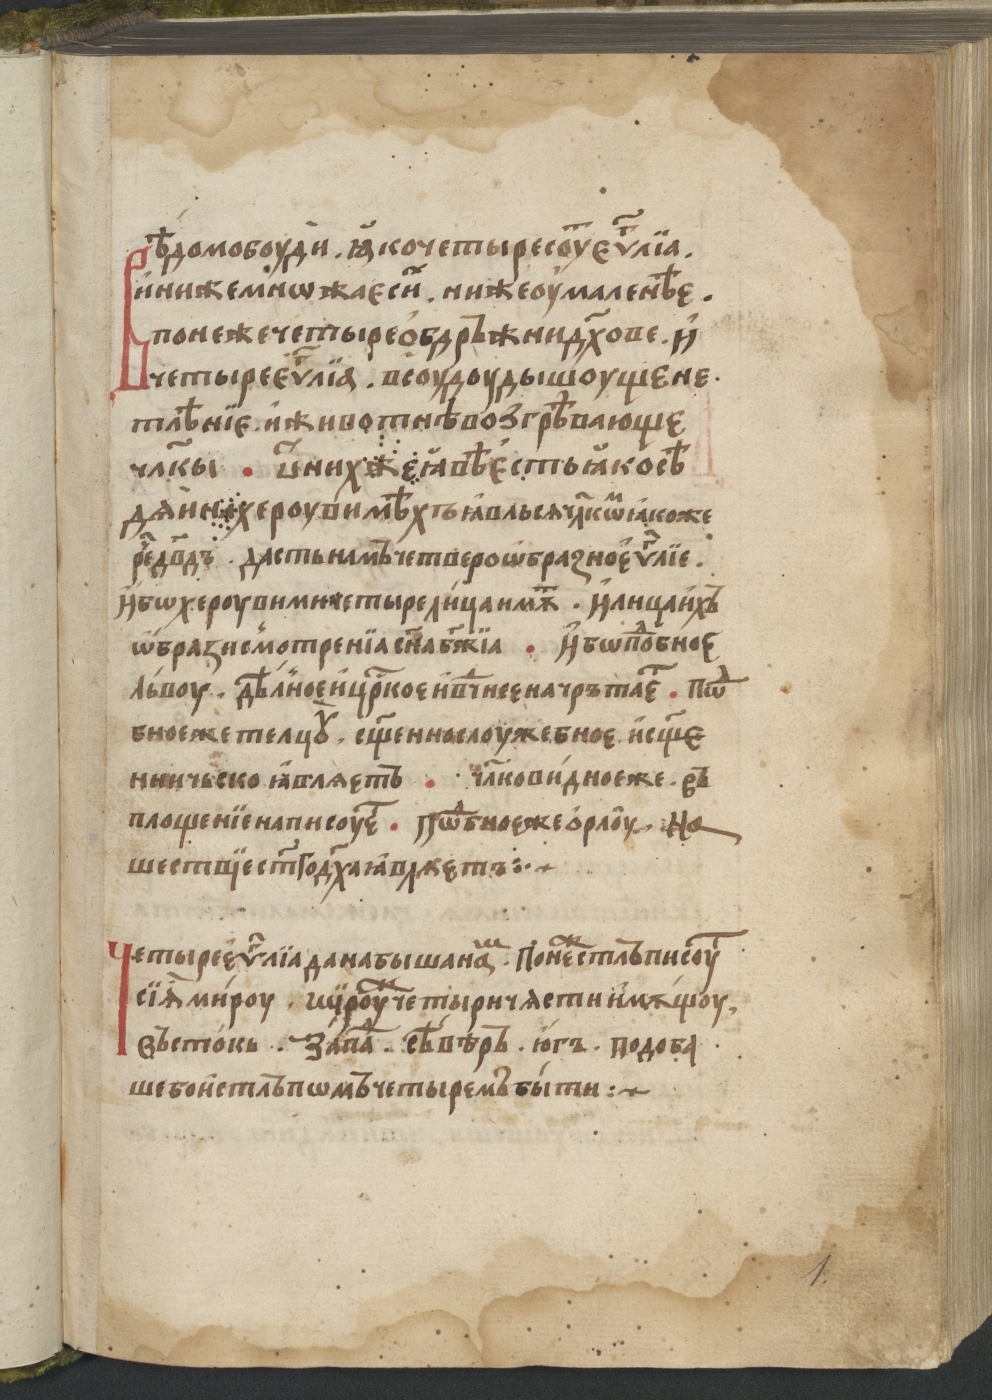 Вѣдомо боуди . ꙗко четыре соуⷮ еѵⷢ҇лїа .
и ни же мнѡжаеси . ни же оумаленѣе .
понеже четыре ѻбдръжни дх҃ове . и
четыре еѵⷢ҇лїа . всоудоу дышоуще не
тлѣнїе . и животнѣ возгрѣвающе
члк҃ы • ѿ нихⷤже ꙗвѣ есть ꙗко сѣ
дѧи на хероувимѣхъ ꙗвльсѧ члк҃ѡⷨ ꙗкоже
реⷱ҇ дв҃дъ . дасть намъ четверообразное еѵⷢ҇лїе .
Ибѡ хероувими четыре лица имѫⷮ . И лица ихъ
ѡбрази смотренїа сн҃а бж҃їа • Ибѡ пѡⷣбное
львоу . дѣлное и црⷭ҇кое и вⷧ҇чнее начрътаеⷮ • Пѡⷣ
бное же телцꙋ . сщ҃енное слоужебное . и сщ҃е
нничьско ꙗвлѧеть • члк҃овидное же . въ
площенїе написоуеⷮ • Пѡⷣбное же ѻрлоу . На
шествїе ст҃го дх҃а ꙗвлѧетъ :~
Четыре еѵⷢ҇лїа дана быша наⷨ . Понеⷤ стлъпи соуⷮ
сїѧ мироу . и широуⷤ четыри чѧсти имѫщоу ,
Въстокь . Запаⷣ . сѣверъ . югъ . подоба
ше бо и стлъпѡмъ четыремъ быти :~
1.